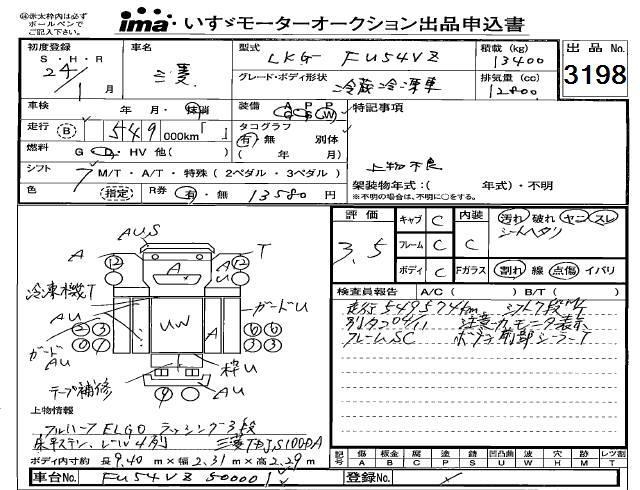 ※赤太枠内は必ず
ボールペンで
ご記入下さい。
ima いすゞモーターオークション出品申込書
初度登録 車名 型式 LKG-FU54VZ 積載(kg) 13400 出品No. 3198
S・H・R 24/1月 三菱 グレード・ボディ形状 冷蔵冷凍車 排気量(cc) 12800
車検 年・月・抹消 装備 A P P G B W 特記事項
走行 B 549 000km「 」 タコグラフ 有・無 別体
燃料 G・D・HV 他( ) ( 年 月) 上物不良
シフト 7 M/T・A/T・特殊(2ペダル・3ペダル) 架装物年式:( 年式)・不明
色 指定 R券 有・無 13580円 ※不明の場合は、不明に○をする。
評価 3.5 キャブ C 内装 C 汚れ 破れ ヤニ スレ
シートヘタリ
フレーム C
ボディ C Fガラス 割れ 線 点傷 イバリ
検査員報告 A/C( ) B/T( )
走行549574km シフト7段M/T
別タコ04/11 注意力モニタ表示
フレームSC ボデー前部シーラーT
AU,S
A T
12 A 12
U
冷凍機T ガードU
AU UW A
2 3 6 6
ガード AU
枠U
テープ補修 AU
上物情報
フルハーフ ELGO ラッシング3段
床ステン、レール4列 三菱TDJS100DA
ボディ内寸約 長9.40m×幅2.31m×高2.29m
記号 傷 A 板金 B 腐 C 塗 P 錆 S 凹凸曲 U 波 W 穴 H 跡 M レツ割 T
車台No. FU54VZ-50001 登録No.